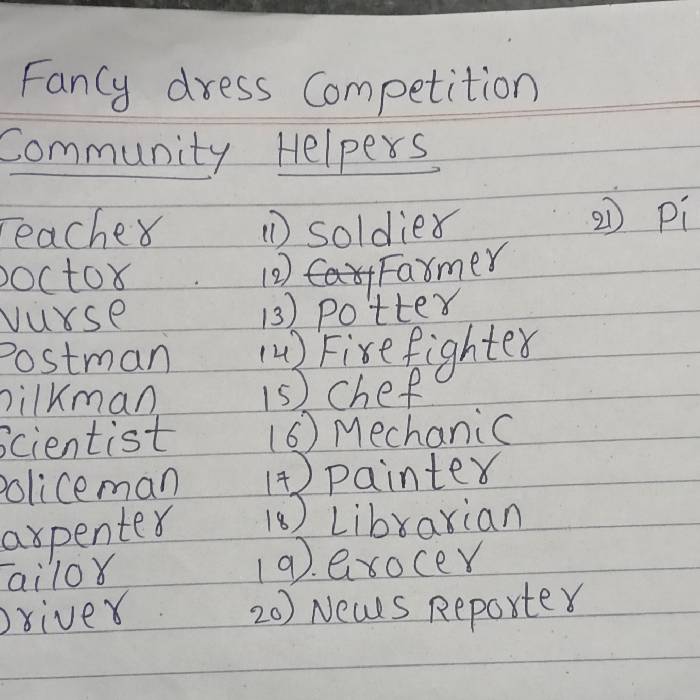 Fancy dress Competition
Community Helpers
Teacher 11) Soldier 21) Pi
Doctor 12) Farmer
Nurse 13) Potter
Postman 14) Firefighter
milkman 15) Chef
Scientist 16) Mechanic
Policeman 17) Painter
arpenter 18) Librarian
Tailor 19). Grocer
Driver 20) News Reporter